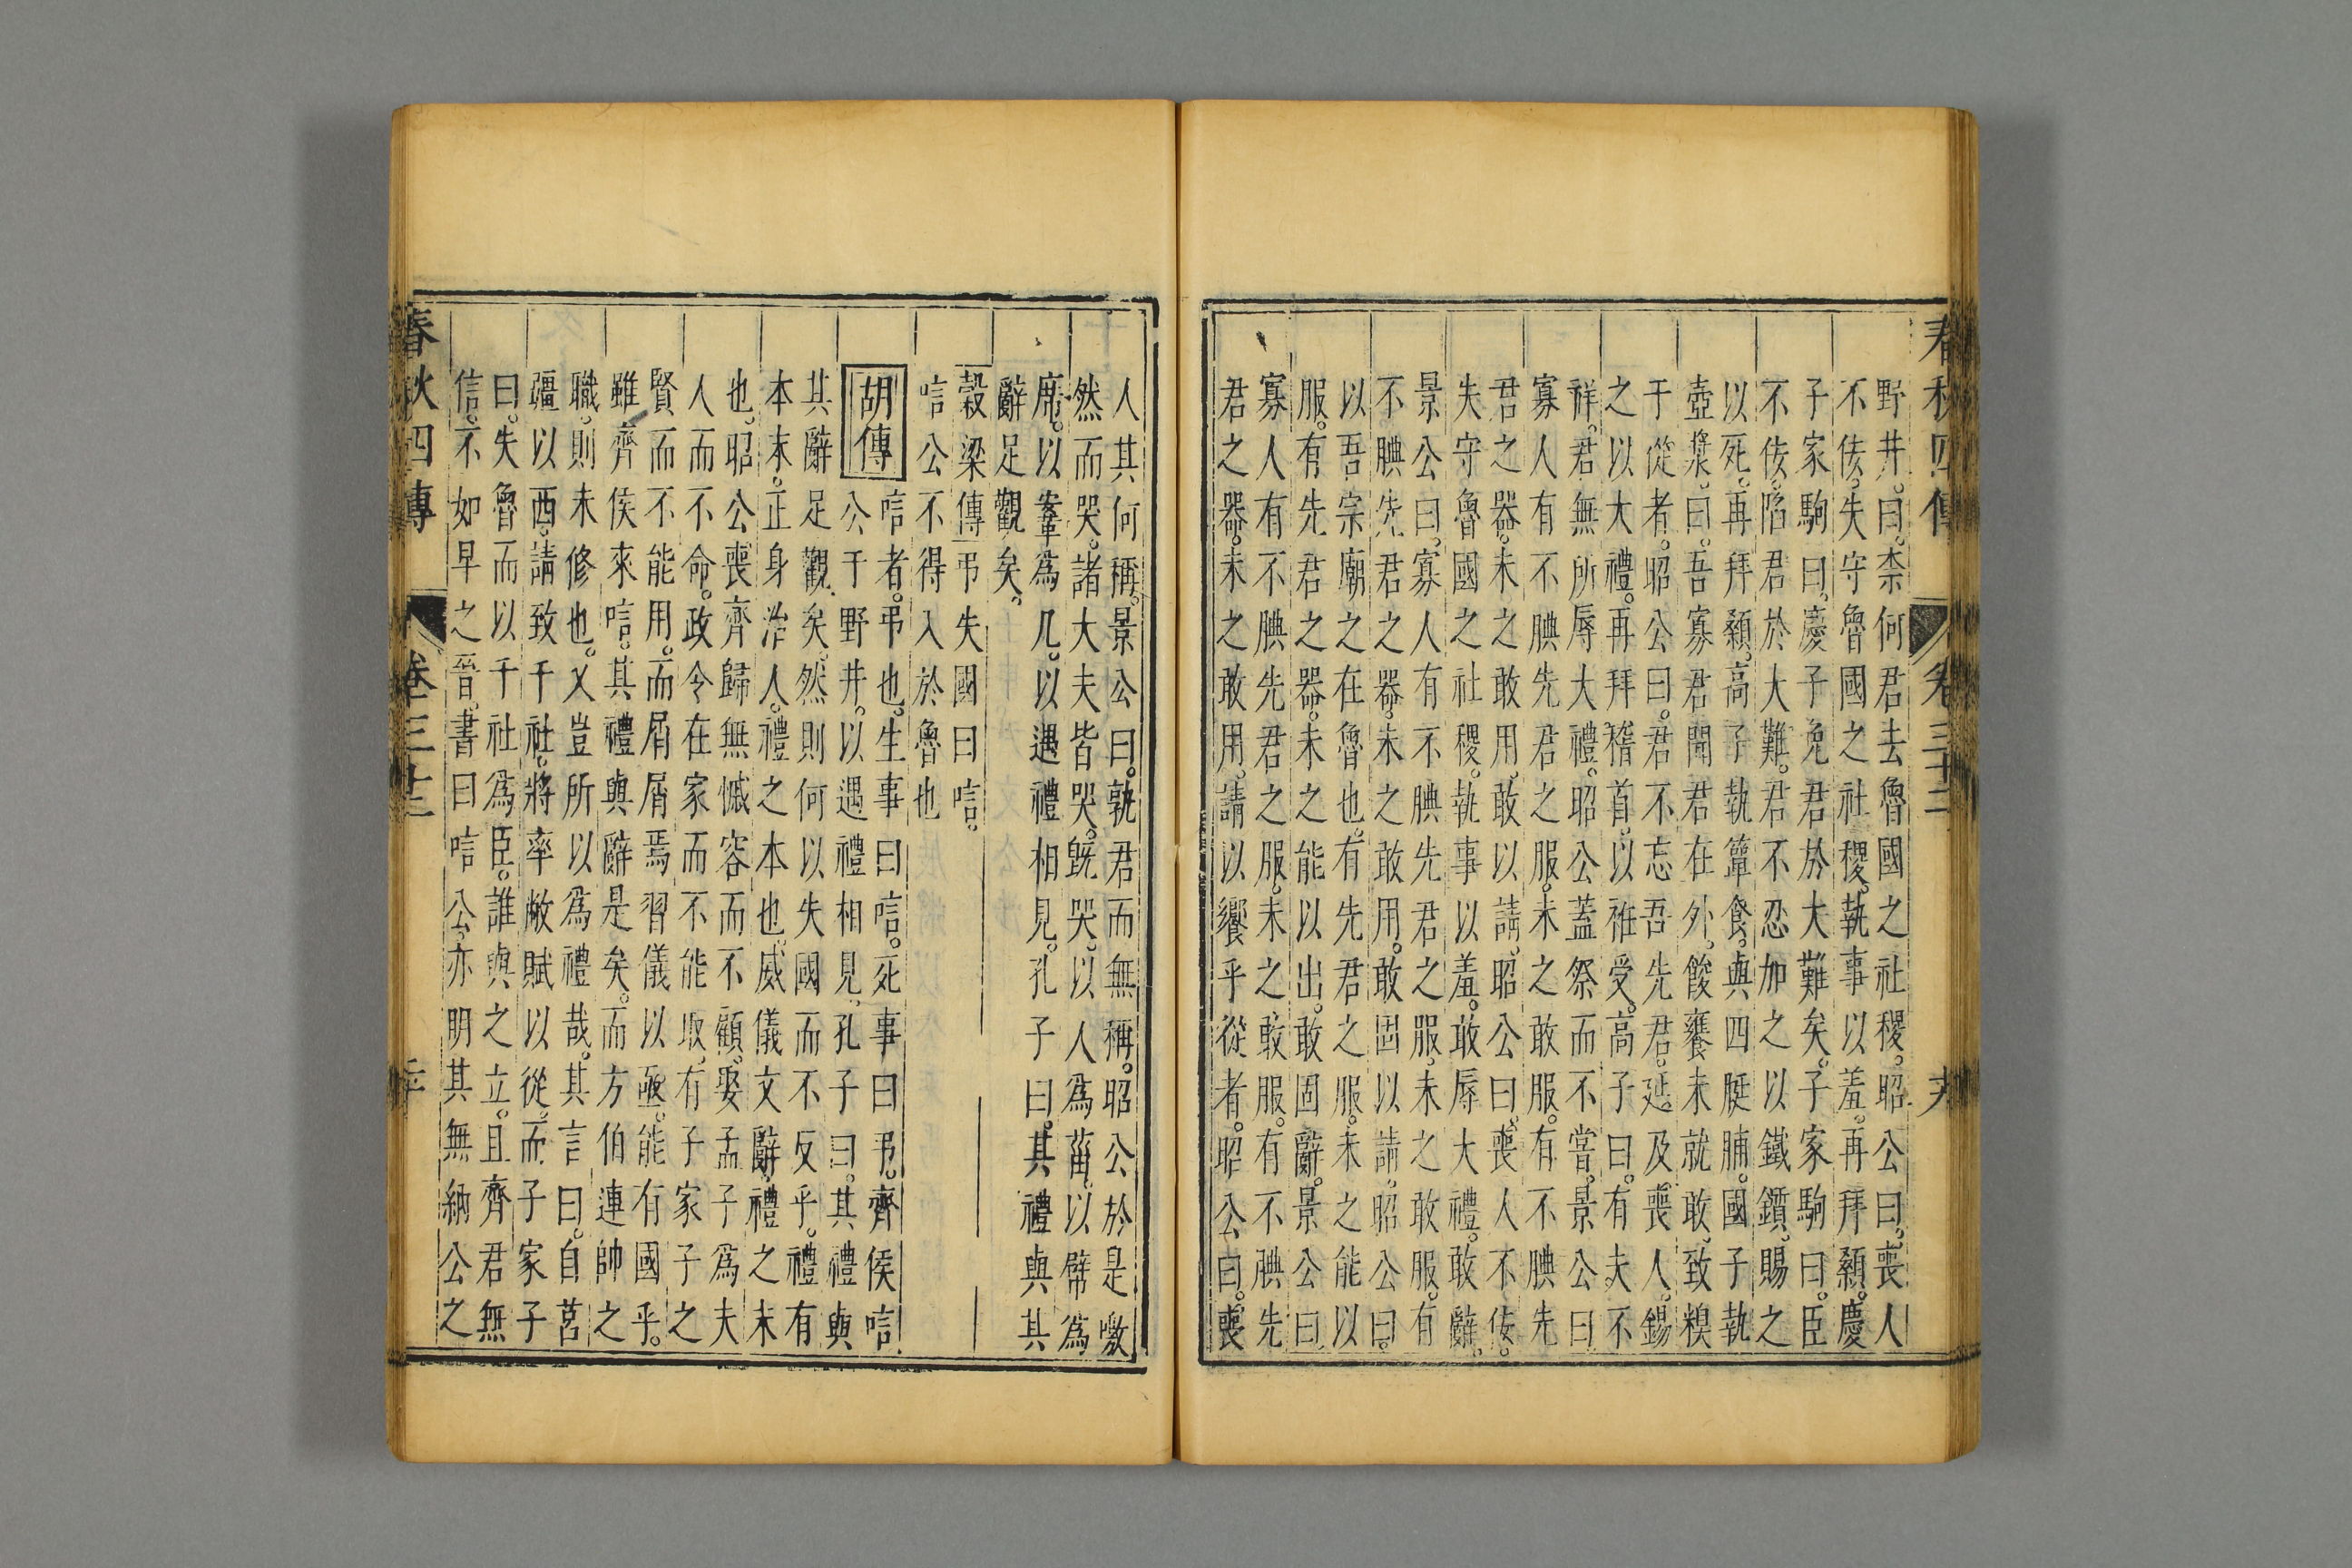 春秋四傳 卷三十三 十九
野井。曰。柰何君去魯國之社稷。昭公曰。喪人
不佞。失守魯國之社稷。執事以羞。再拜顙。慶
子家駒曰。慶子免君於大難矣。子家駒曰。臣
不佞。陷君於大難。君不忍加之以鐵鑕。賜之
以死。再拜顙。高子執簞食。與四脡脯。國子執
壺漿。曰。吾寡君聞君在外。餕饔未就。敢致糗
于從者。昭公曰。君不忘吾先君。延及喪人。錫
之以大禮。再拜稽首。以袵受。高子曰。有夫不
祥。君無所辱大禮。昭公蓋祭而不嘗。景公曰
寡人有不腆先君之服。未之敢服。有不腆先
君之器。未之敢用。敢以請。昭公曰。喪人不佞。
失守魯國之社稷。執事以羞。敢辱大禮。敢辭。
景公曰。寡人有不腆先君之服。未之敢服。有
不腆先君之器。未之敢用。敢固以請。昭公曰。
以吾宗廟之在魯也。有先君之服。未之能以
服。有先君之器。未之能以出。敢固辭。景公曰
寡人有不腆先君之服。未之敢服。有不腆先
君之器。未之敢用。請以饗乎從者。昭公曰。喪
人其何稱。景公曰。孰君而無稱。昭公於是噭
然而哭。諸大夫皆哭。旣哭。以人爲菑。以幦爲
席。以鞌爲几。以遇禮相見。孔子曰。其禮與其
辭足觀矣。
穀梁傳 弔失國曰唁。
唁公不得入於魯也
胡傳 唁者。弔也。生事曰唁。死事曰弔。齊侯唁
公于野井。以遇禮相見。孔子曰。其禮與
其辭足觀矣。然則何以失國而不反乎。禮有
本末。正身治人。禮之本也。威儀文辭。禮之末
也。昭公喪齊歸無慽容而不顧。娶孟子爲夫
人而不命。政令在家而不能取。有子家子之
賢而不能用。而屑屑焉習儀以亟。能有國乎。
雖齊侯來唁。其禮與辭是矣。而方伯連帥之
職。則未修也。又豈所以爲禮哉。其言曰。自莒
疆以西。請致千社。將率敝賦以從。而子家子
曰。失魯而以千社爲臣。誰與之立。且齊君無
信。不如早之晉。書曰唁公。亦明其無納公之
春秋四傳 卷三十三